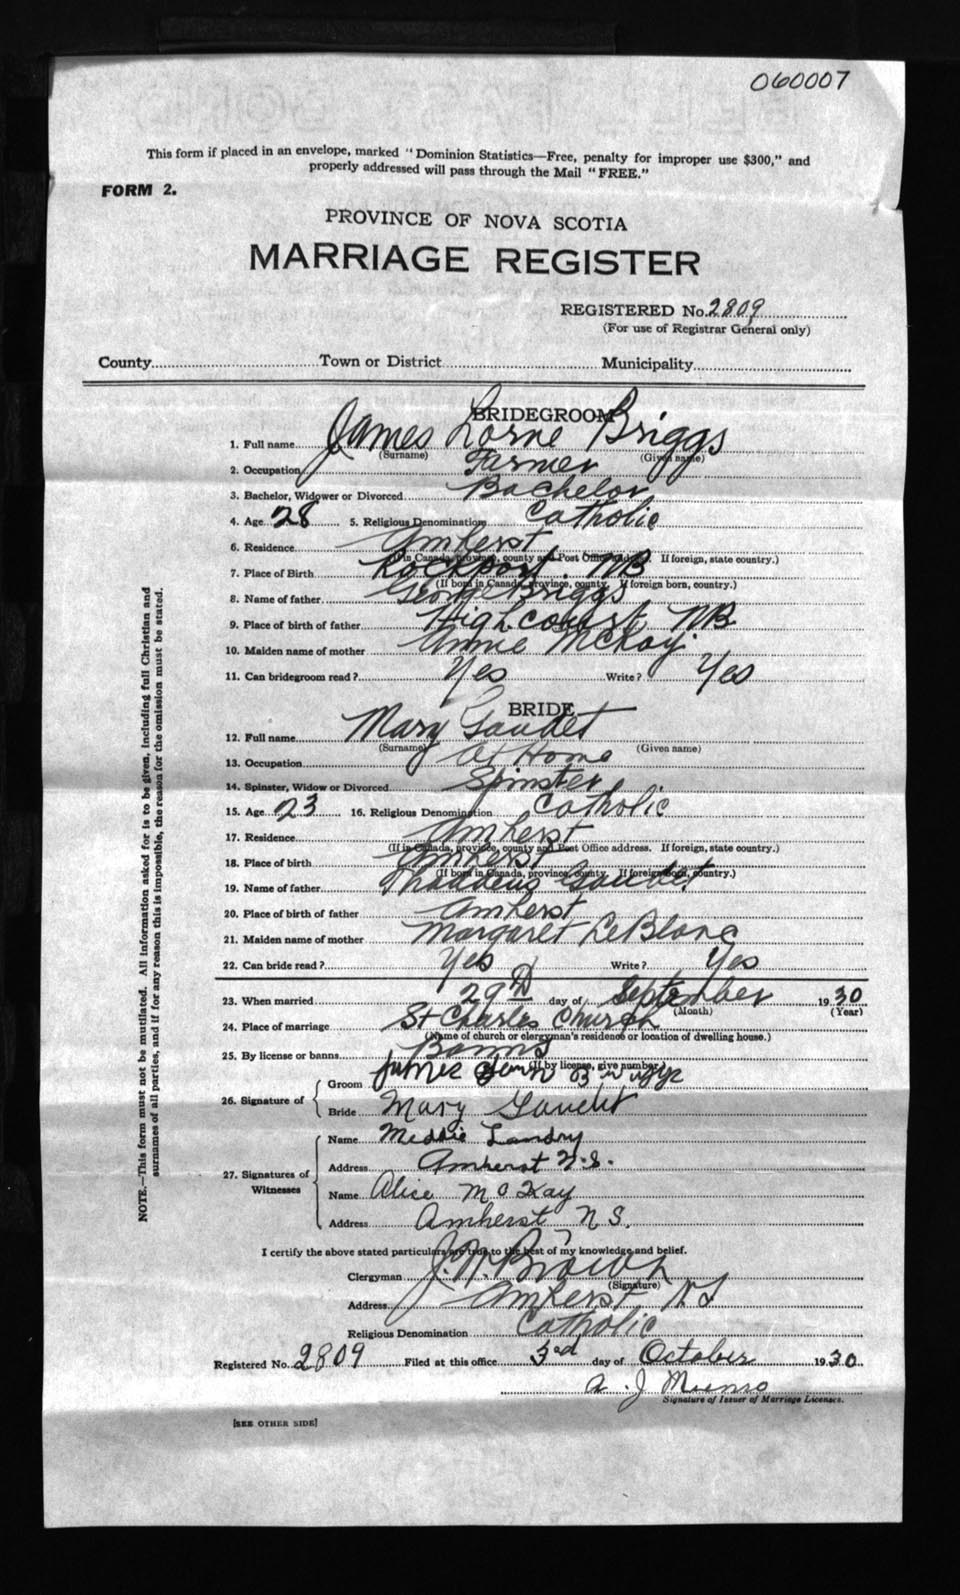 060007
This form if placed in an envelope, marked "Dominion Statistics—Free, penalty for improper use $300," and
properly addressed will pass through the Mail "FREE."
FORM 2.
PROVINCE OF NOVA SCOTIA
MARRIAGE REGISTER
REGISTERED No. 2809
(For use of Registrar General only)
County Town or District Municipality
BRIDEGROOM
1. Full name James Lorne Briggs
(Surname) (Given name)
2. Occupation Farmer
3. Bachelor, Widower or Divorced Bachelor
4. Age 28 5. Religious Denomination Catholic
6. Residence Amherst
(If in Canada, province, county and Post Office address. If foreign, state country.)
7. Place of Birth Rockport NB
(If born in Canada, province, county. If foreign born, country.)
8. Name of father George Briggs
9. Place of birth of father NB
10. Maiden name of mother Annie McKay
11. Can bridegroom read? Yes Write? Yes
BRIDE
12. Full name Mary Gaudet
(Surname) (Given name)
13. Occupation At Home
14. Spinster, Widow or Divorced Spinster
15. Age 23 16. Religious Denomination Catholic
17. Residence Amherst
(If in Canada, province, county and Post Office address. If foreign, state country.)
18. Place of birth Amherst
(If born in Canada, province, county. If foreign born, country.)
19. Name of father Thaddeus Gaudet
20. Place of birth of father Amherst
21. Maiden name of mother Margaret LeBlanc
22. Can bride read? Yes Write? Yes
23. When married 29th day of September 1930
(Month) (Year)
24. Place of marriage St Charles Church
(Name of church or clergyman's residence or location of dwelling house.)
25. By license or banns Banns
(If by license, give number)
26. Signature of Groom James
Bride Mary Gaudet
27. Signatures of Witnesses
Name Meddie Landry
Address Amherst N.S.
Name Alice McKay
Address Amherst N.S.
I certify the above stated particulars are true to the best of my knowledge and belief.
Clergyman J. W. Brown
(Signature)
Address Amherst NS
Religious Denomination Catholic
Registered No. 2809 Filed at this office 3rd day of October 1930
A. J. Munro
Signature of Issuer of Marriage Licenses.
[SEE OTHER SIDE]
NOTE.—This form must not be mutilated. All information asked for is to be given, including full Christian and
surnames of all parties, and if for any reason this is impossible, the reason for the omission must be stated.